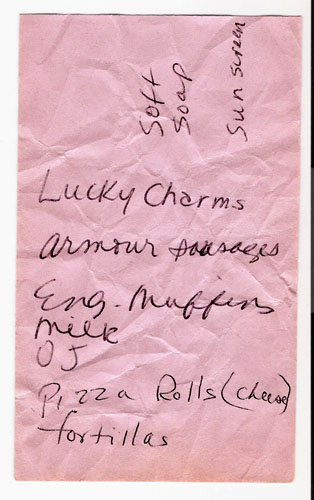 Soft
Soap
Sun screen
Lucky Charms
Armour sausages
Eng. Muffins
milk
OJ
Pizza Rolls (cheese)
tortillas